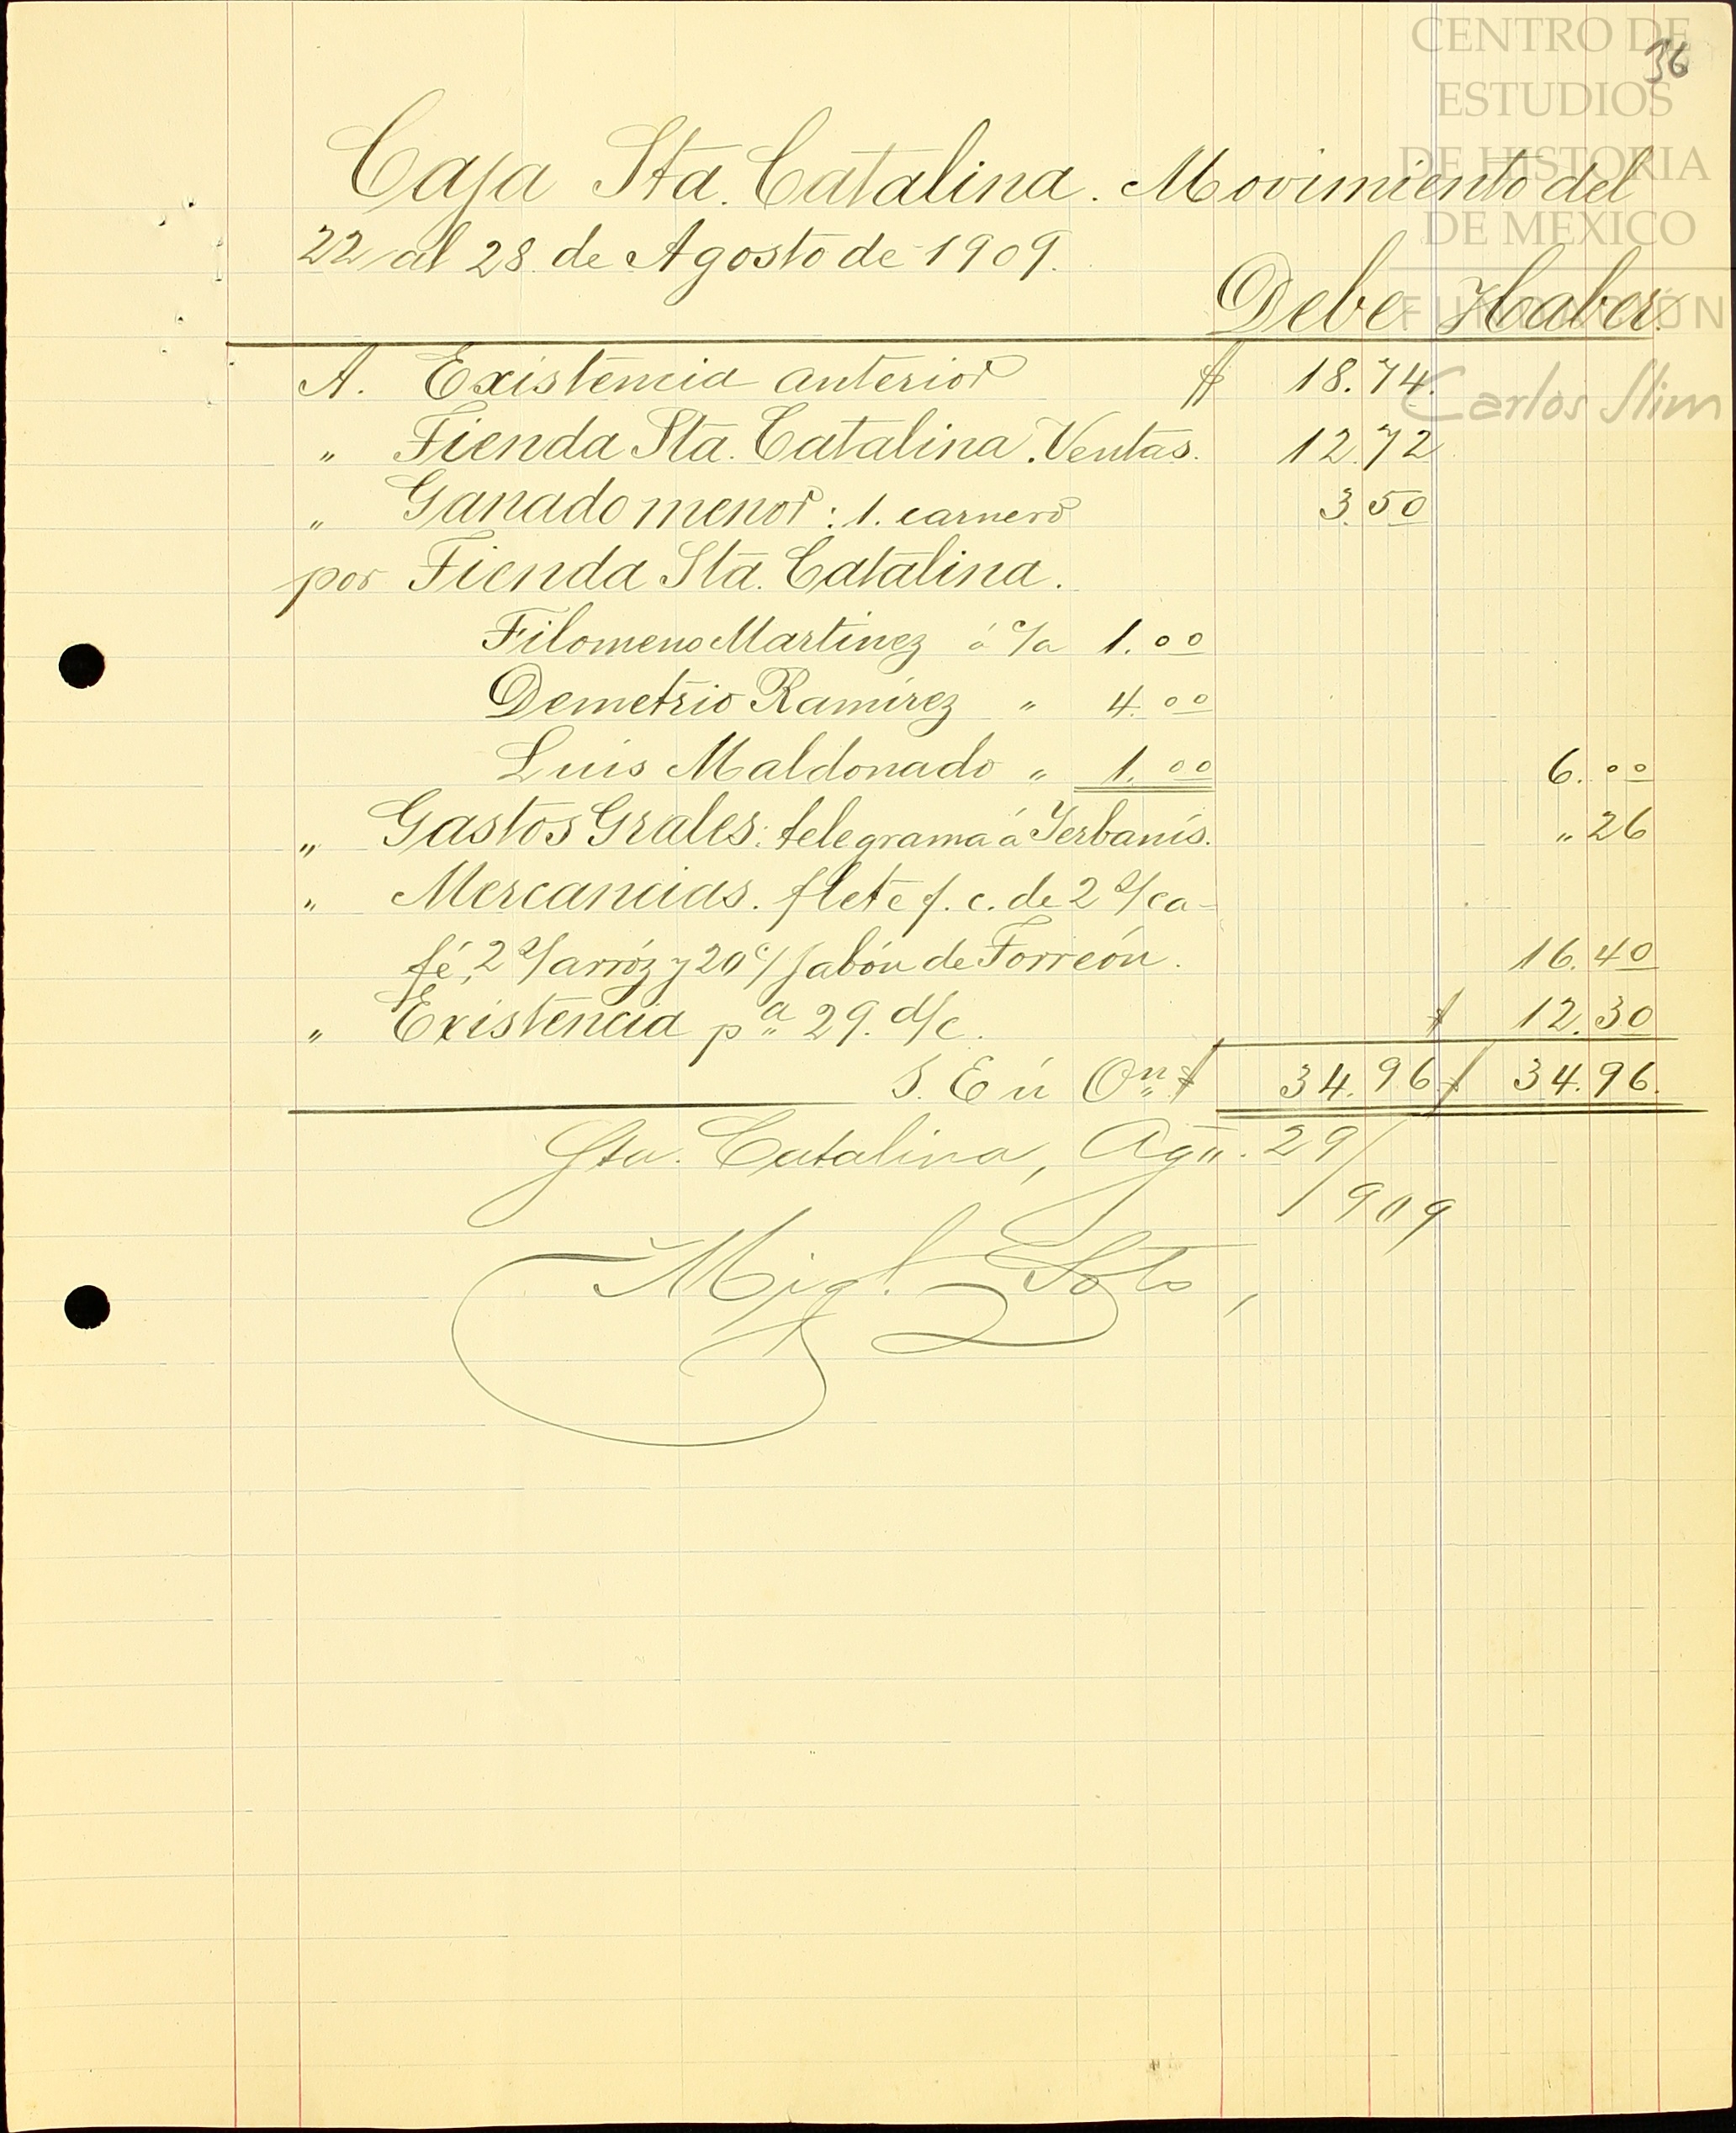 CENTRO DE
ESTUDIOS
DE HISTORIA
DE MEXICO
FUNDACIÓN
Carlos Slim
36
Caja Sta. Catalina. Movimiento del
22 al 28 de Agosto de 1909.
Debe Haber.
A. Existencia anterior $ 18.74.
" Tienda Sta. Catalina. Ventas. 12.72
" Ganado menor: 1. carnero 3.50
por Tienda Sta. Catalina.
Filomeno Martinez á c/a 1.00
Demetrio Ramírez " 4.00
Luis Maldonado " 1.00 6.00
" Gastos Grales: telegrama á Yerbanís. " 26
" Mercancías. flete f. c. de 2 s/ ca-
fé, 2 s/ arróz y 20 c/ Jabón de Torreón. 16.40
" Existencia pa 29. d/c. $ 12.30
S. E ú On $ 34.96 $ 34.96.
Sta. Catalina, Ago. 29/
909
Migl. Soto,